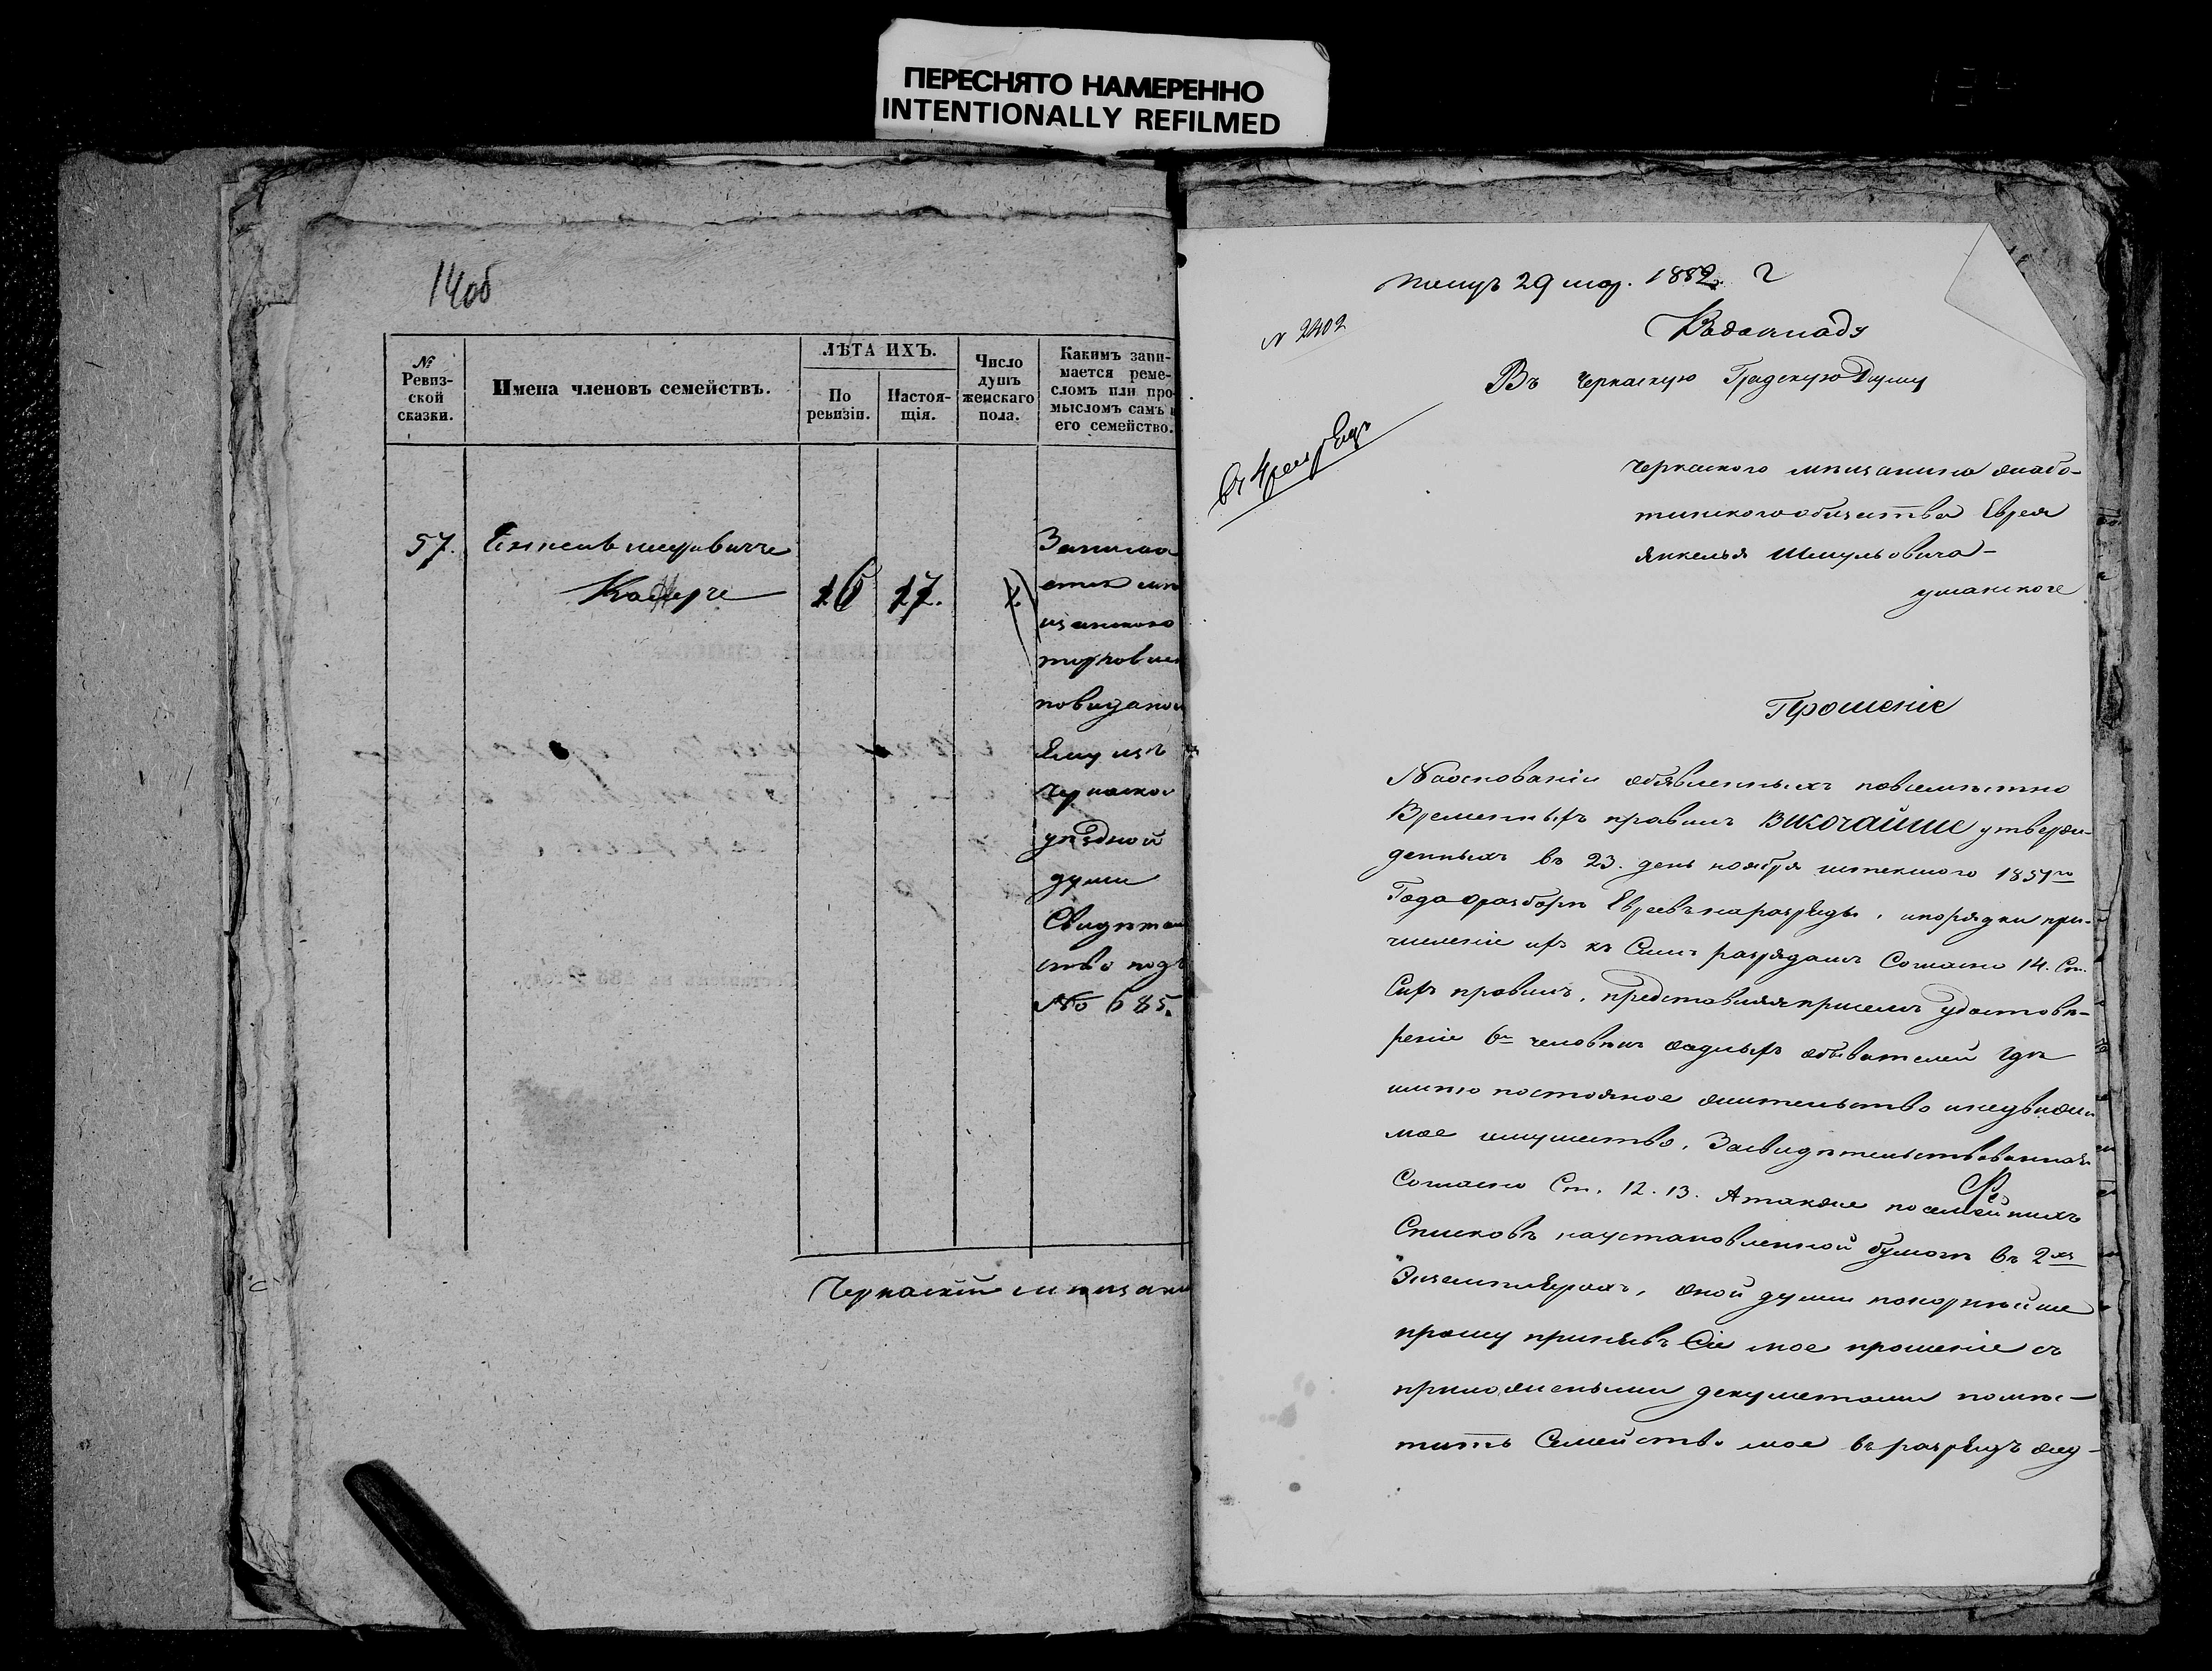 ПЕРЕСНЯТО НАМЕРЕННО
INTENTIONALLY REFILMED
14об
№ Ревиз-
ской
сказки.
Имена членовъ семействъ.
ЛѢТА ИХЪ.
По
ревизіи.
Настоя-
щія.
Число
душъ
женскаго
пола.
Какимъ зани-
мается реме-
сломъ или про-
мысломъ самъ и
его семейство.
57.
16
17.
ему изъ
уѣздной
думы
Свидѣтель
ство подъ
№ 685.
Черкаскій мѣщани
29 мар. 1852 г
№ 2402
Въ Черкаскую Градскую Думу
Черкаского мѣщанина
Еврея
Янкеля Шмульовича
уманского
Прошеніе
На основаніи объявленныхъ повсемѣстно
Временныхъ правилъ Высочайше утверж-
денныхъ въ 23. день ноября истекшого 1851го
Года о разборѣ Евреевъ на разряды, и порядки при-
численіе ихъ къ Симъ разрядамъ Согласно 14. Ст.
Сихъ правилъ, представляя присемъ удостовѣ-
реніе 6ти человѣкъ обывателей гдѣ
имѣю постояное жительство и недвижи
мое имущество, Засвидѣтельствованная
Согласно Ст. 12. 13. А также посемейныхъ
Списковъ на установленной бумагѣ въ 2хъ
Экземплярахъ, оной думы покорнѣйше
прошу принявъ Сіе мое прошеніе съ
приложеными документами помѣс-
тить Семейство мое въ разрядъ